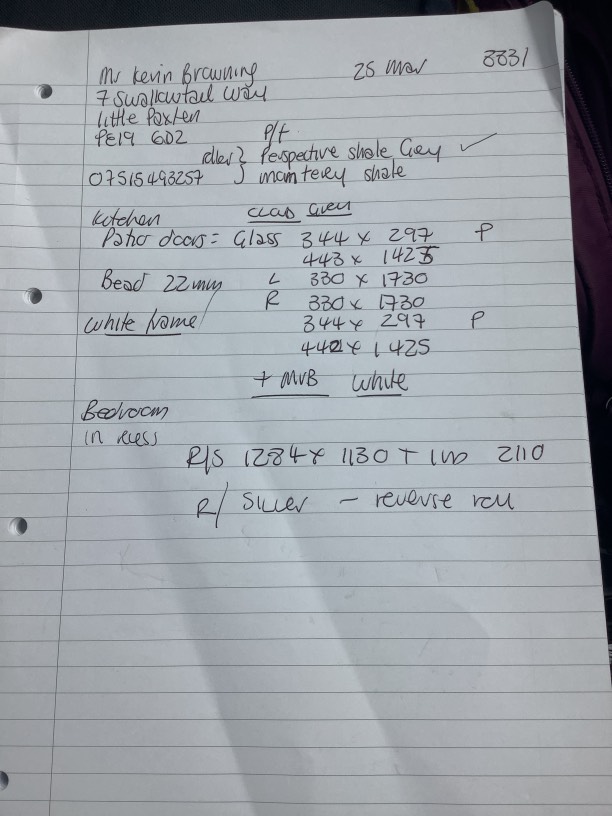 Mr Kevin Browning 25 Mar 8831
7 Swallowtail Way
Little Paxton
PE19 6D2 P/t
} Perspective shale Grey ✓
07515493257 } montery shale
Kitchen
Patio doors = Glass 344 x 297 P
443 x 1425
Bead 22mm L 330 x 1730
R 330 x 1730
White frame 344 x 297 P
442 x 1425
+ MVB White
Bedroom
in recess
R/S 1284 x 1130 + 2110
R/ Silver - reverse roll